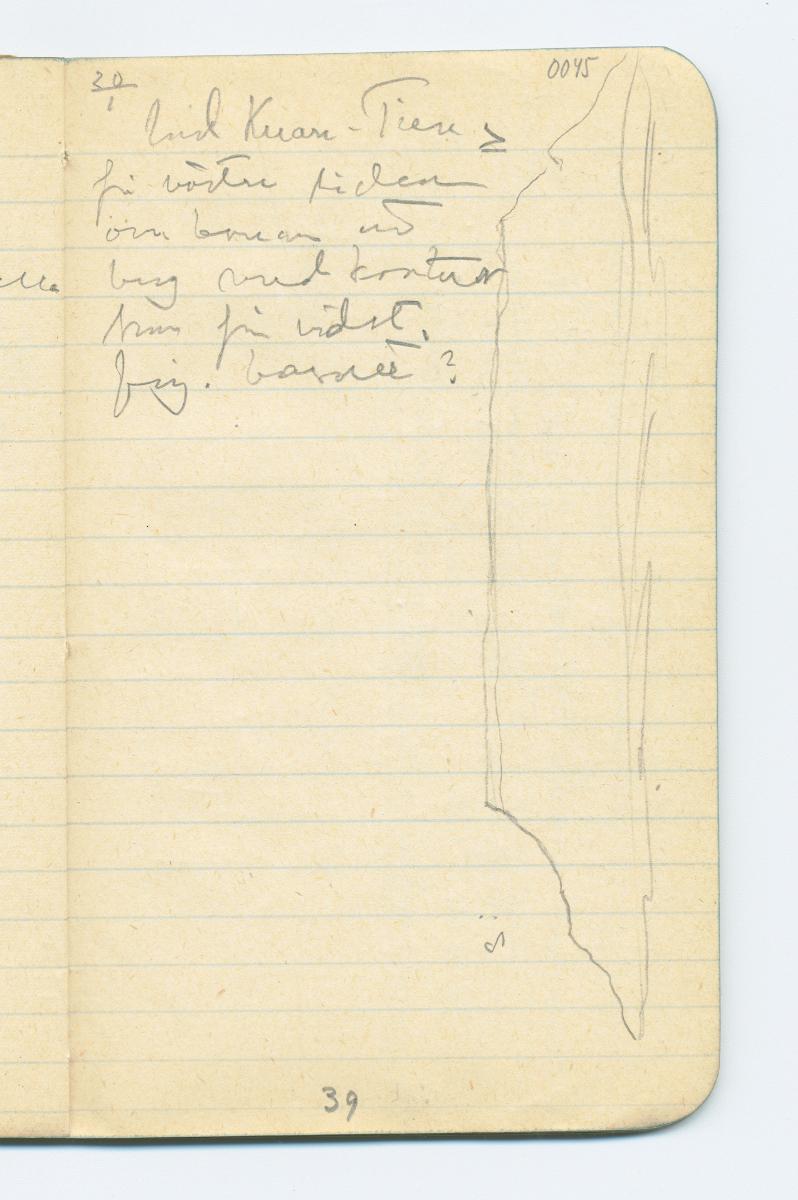 0045
30/1
Vid Kuan-Tien
på västra sidan
om banan ett
berg med kontur
som fin vidst.
fig. basalt?
ö
39